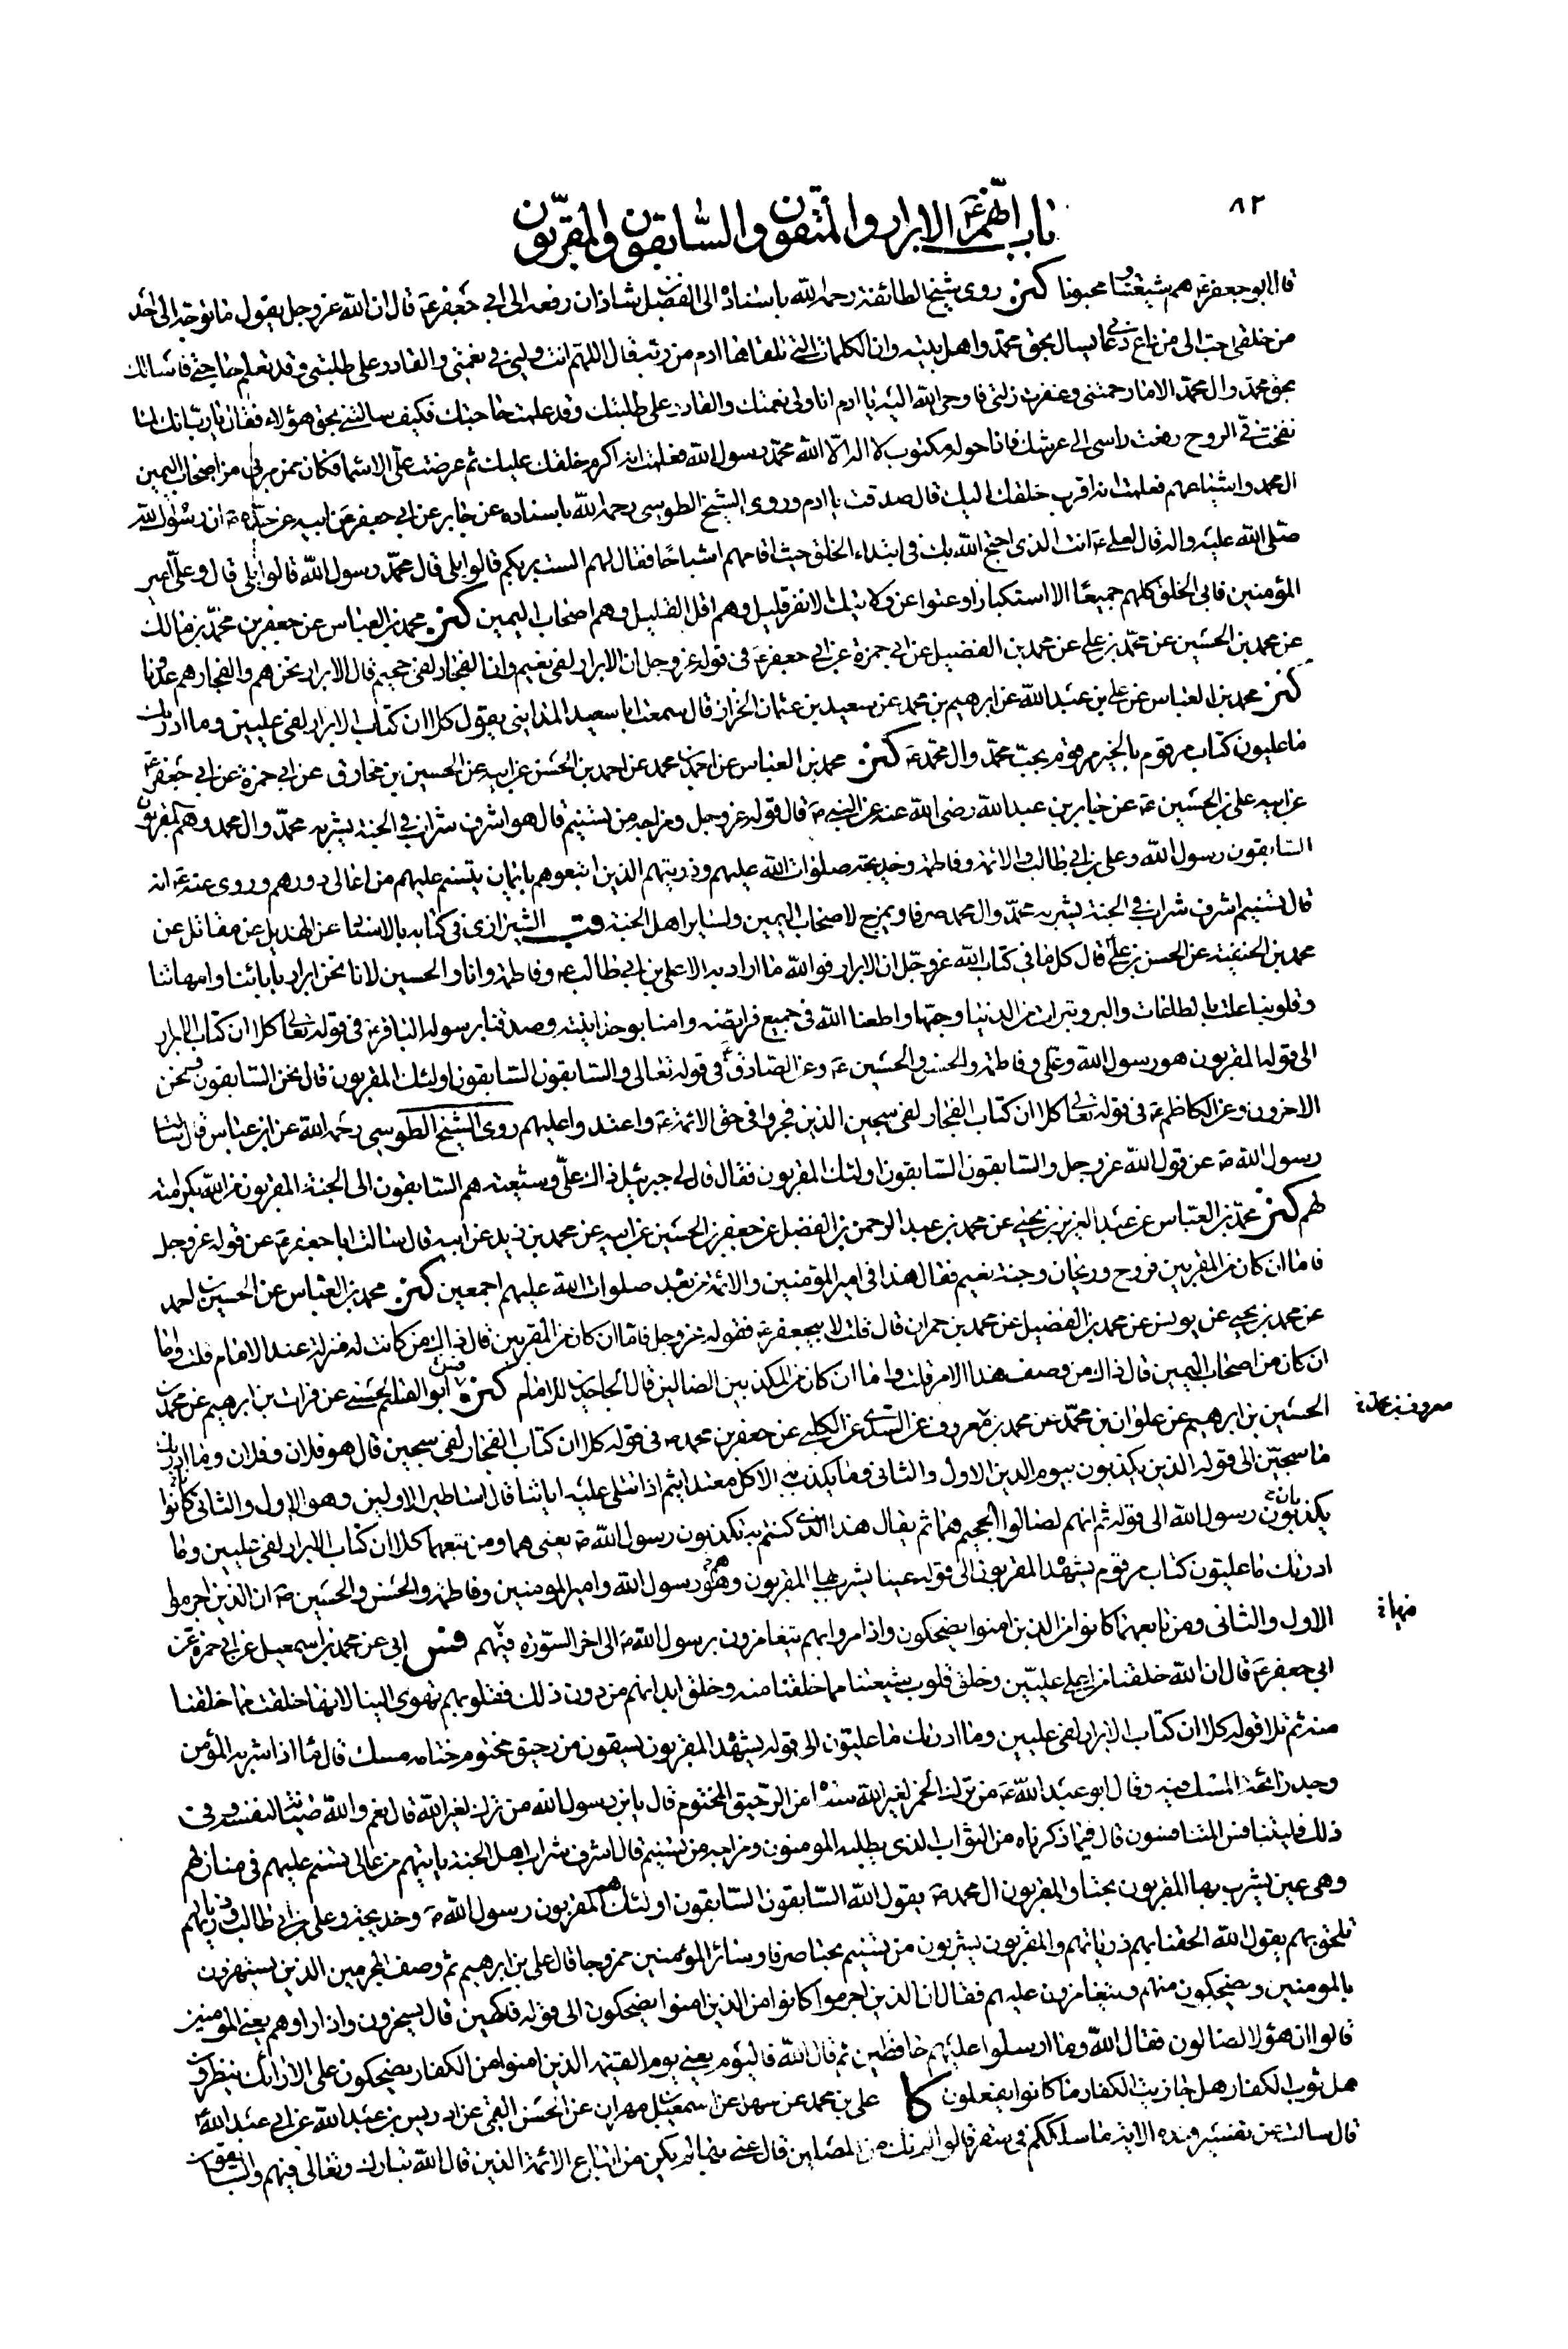 ٨٢
باب انهم ع الابرار والمتقون والسابقون والمقربون
قال ابو جعفر ع هم شيعتنا و محبونا كنز روى شيخ الطائفة رحمه الله باسناده الى الفضل بن شاذان رفعه الى ابي جعفر ع قال ان الله عز وجل يقول ما توجه الى احد
من خلقي احب الى من داع دعاني يسال بحق محمد واهل بيته وان الكلمات التي تلقاها ادم من ربه قال اللهم انت وليي في نعمتي والقادر على طلبتي وقد تعلم حاجتي فاسالك
بحق محمد وال محمد الا ما رحمتني وغفرت زلتي فاوحى الله اليه يا ادم انا ولي نعمتك والقادر على طلبتك وقد علمت حاجتك فكيف سالتني بحق هؤلاء فقال يا رب انك لما
نفخت في الروح رفعت راسي الى عرشك فاذا حوله مكتوب لا اله الا الله محمد رسول الله فعلمت انه اكرم خلقك عليك ثم عرضت علي الاسماء فكان ممن مر بي من اصحاب اليمين
ال محمد واشياعهم فعلمت انه اقرب خلقك اليك قال صدقت يا ادم وروى الشيخ الطوسي رحمه الله باسناده عن جابر عن ابي جعفر عن ابيه عن جده ع ان رسول الله
صلى الله عليه واله قال لعلي ع انت الذي احتج الله بك في ابتداء الخلق حيث اقامهم اشباحا فقال لهم الست بربكم قالوا بلى قال محمد رسول الله قالوا بلى قال وعلي امير
المؤمنين فابى الخلق كلهم جميعا الا استكبارا وعتوا عن ولايتك الا نفر قليل وهم اقل القليل وهم اصحاب اليمين كنز محمد بن العباس عن جعفر بن محمد بن مالك
عن محمد بن الحسين عن محمد بن علي عن محمد بن الفضيل عن ابي حمزة عن ابي جعفر ع في قوله عز وجل ان الابرار لفي نعيم وان الفجار لفي جحيم قال الابرار نحن هم والفجار هم عدونا
كنز محمد بن العباس عن علي بن عبد الله عن ابرهيم بن محمد عن سعيد بن عثمان الخزاز قال سمعت ابا سعيد المدايني يقول كلا ان كتاب الابرار لفي عليين وما ادريك
ما عليون كتاب مرقوم بالخير مرقوم بحب محمد وال محمد ع كنز محمد بن العباس عن احمد بن محمد عن احمد بن الحسن عن ابيه عن الحسين بن مخارق عن ابي حمزة عن ابي جعفر ع
عن ابيه علي بن الحسين ع عن جابر بن عبد الله رضي الله عنه عن النبي ص قال قوله عز وجل ومزاجه من تسنيم قال هو اشرف شراب في الجنة يشربه محمد وال محمد وهم المقربون
السابقون رسول الله وعلي بن ابي طالب والائمة وفاطمة وخديجة صلوات الله عليهم وذريتهم الذين اتبعوهم بايمان يتسنم عليهم من اعالي دورهم وروى عنه ع انه
قال تسنيم اشرف شراب في الجنة يشربه محمد وال محمد صرفا ويمزج لاصحاب اليمين ولساير اهل الجنة قب الشيرازي في كتابه بالاسناد عن الهذيل عن مقاتل عن
محمد بن الحنفية عن الحسن بن علي قال كل ما في كتاب الله عز وجل ان الابرار فو الله ما اراد به الا علي بن ابي طالب ع وفاطمة وانا والحسين لانا نحن ابرار بابائنا وامهاتنا
وقلوبنا علت بالطاعات والبر وتبرات من الدنيا وحبها واطعنا الله في جميع فرايضه وامنا بوحدانيته وصدقنا برسوله الباقر ع في قوله تعالى كلا ان كتاب الابرار
الى قوله المقربون هو رسول الله وعلي وفاطمة والحسن والحسين ع وعن الصادق ع في قوله تعالى والسابقون السابقون اولئك المقربون قال نحن السابقون ونحن
الاخرون وعن الكاظم ع في قوله تعالى كلا ان كتاب الفجار لفي سجين الذين فجروا في حق الائمة ع واعتدوا عليهم روى الشيخ الطوسي رحمه الله عن ابن عباس قال سالت
رسول الله ص عن قول الله عز وجل والسابقون السابقون اولئك المقربون فقال قال لي جبرئيل ذاك علي وشيعته هم السابقون الى الجنة المقربون من الله بكرامته
لهم كنز محمد بن العباس عن عبد العزيز بن يحيى عن محمد بن عبد الرحمن بن الفضل عن جعفر بن الحسين عن ابيه عن محمد بن زيد عن ابيه قال سالت ابا جعفر ع عن قوله عز وجل
فاما ان كان من المقربين فروح وريحان وجنة نعيم فقال هذا في امير المؤمنين والائمة من بعده صلوات الله عليهم اجمعين كنز محمد بن العباس عن الحسين بن احمد
عن محمد بن يحيى عن يونس عن محمد بن الفضيل عن محمد بن حمران قال قلت لابي جعفر ع فقوله عز وجل فاما ان كان من المقربين قال ذاك من كانت له منزلة عند الامام قلت واما
ان كان من اصحاب اليمين قال ذاك من وصف هذا الامر قلت واما ان كان من المكذبين الضالين قال الجاحدين للامام كنز ابو القاسم الحسني عن فرات بن ابرهيم عن محمد بن
الحسين بن ابرهيم عن علوان بن محمد عن محمد بن معروف عن السدي عن الكلبي عن جعفر بن محمد ع في قوله كلا ان كتاب الفجار لفي سجين قال هو فلان وفلان وما ادريك
معروف بن محمد خ
ما سجين الى قوله الذين يكذبون بيوم الدين الاول والثاني وما يكذب به الا كل معتد اثيم اذا تتلى عليه اياتنا قال اساطير الاولين وهو الاول والثاني كانوا
يكذبون رسول الله الى قوله ثم انهم لصالوا الجحيم هما ثم يقال هذا الذي كنتم به تكذبون رسول الله ص يعني هما ومن تبعهما كلا ان كتاب الابرار لفي عليين وما
ادريك ما عليون كتاب مرقوم يشهده المقربون الى قوله عينا يشرب بها المقربون وهم رسول الله وامير المومنين وفاطمة والحسن والحسين ع ان الذين اجرموا
الاول والثاني ومن تابعهما كانوا من الذين امنوا يضحكون واذا مروا بهم يتغامزون برسول الله ص الى اخر السورة فيهم فس ابي عن محمد بن اسمعيل عن ابي حمزة عن
فيهما خ
ابي جعفر ع قال ان الله خلقنا من اعلى عليين وخلق قلوب شيعتنا مما خلقنا منه وخلق ابدانهم من دون ذلك فقلوبهم تهوى الينا لانها خلقت مما خلقنا
منه ثم تلا قوله كلا ان كتاب الابرار لفي عليين وما ادريك ما عليون الى قوله يشهده المقربون يسقون من رحيق مختوم ختامه مسك قال ماء اذا شربه المؤمن
وجد رائحة المسك فيه وقال ابو عبد الله ع من ترك الخمر لغير الله سقاه الله من الرحيق المختوم قال يا بن رسول الله من ترك لغير الله قال نعم والله صيانة لنفسه وفي
ذلك فليتنافس المتنافسون قال فيما ذكرناه من الثواب الذي يطلبه المومنون ومزاجه من تسنيم قال اشرف شراب اهل الجنة ياتيهم من عالي يتسنم عليهم في منازلهم
وهي عين يشرب بها المقربون بحتا والمقربون ال محمد ص يقول الله السابقون السابقون اولئك هم المقربون رسول الله ص وخديجة وعلي بن ابي طالب وذرياتهم
تلحق بهم يقول الله الحقنا بهم ذرياتهم والمقربون يشربون من تسنيم بحتا صرفا وسائر المؤمنين ممزوجا قال علي بن ابرهيم ثم وصف المجرمين الذين يستهزؤن
بالمومنين ويضحكون منهم ويتغامزون عليهم فقال ان الذين اجرموا كانوا من الذين امنوا يضحكون الى قوله فكهين قال يسخرون واذا راوهم يعني المومنين
قالوا ان هؤلاء لضالون فقال الله وما ارسلوا عليهم حافظين ثم قال الله فاليوم يعني يوم القيمة الذين امنوا من الكفار يضحكون على الارائك ينظرون
هل ثوب الكفار هل جازيت الكفار ما كانوا يفعلون كا علي بن محمد عن سهل عن اسمعيل بن مهران عن الحسن القمي عن ادريس بن عبد الله عن ابي عبد الله ع
قال سالته عن تفسير هذه الاية ما سلككم في سقر قالوا لم نك من المصلين قال عنى بها لم نكن من اتباع الائمة الذين قال الله تبارك وتعالى فيهم والسابقون